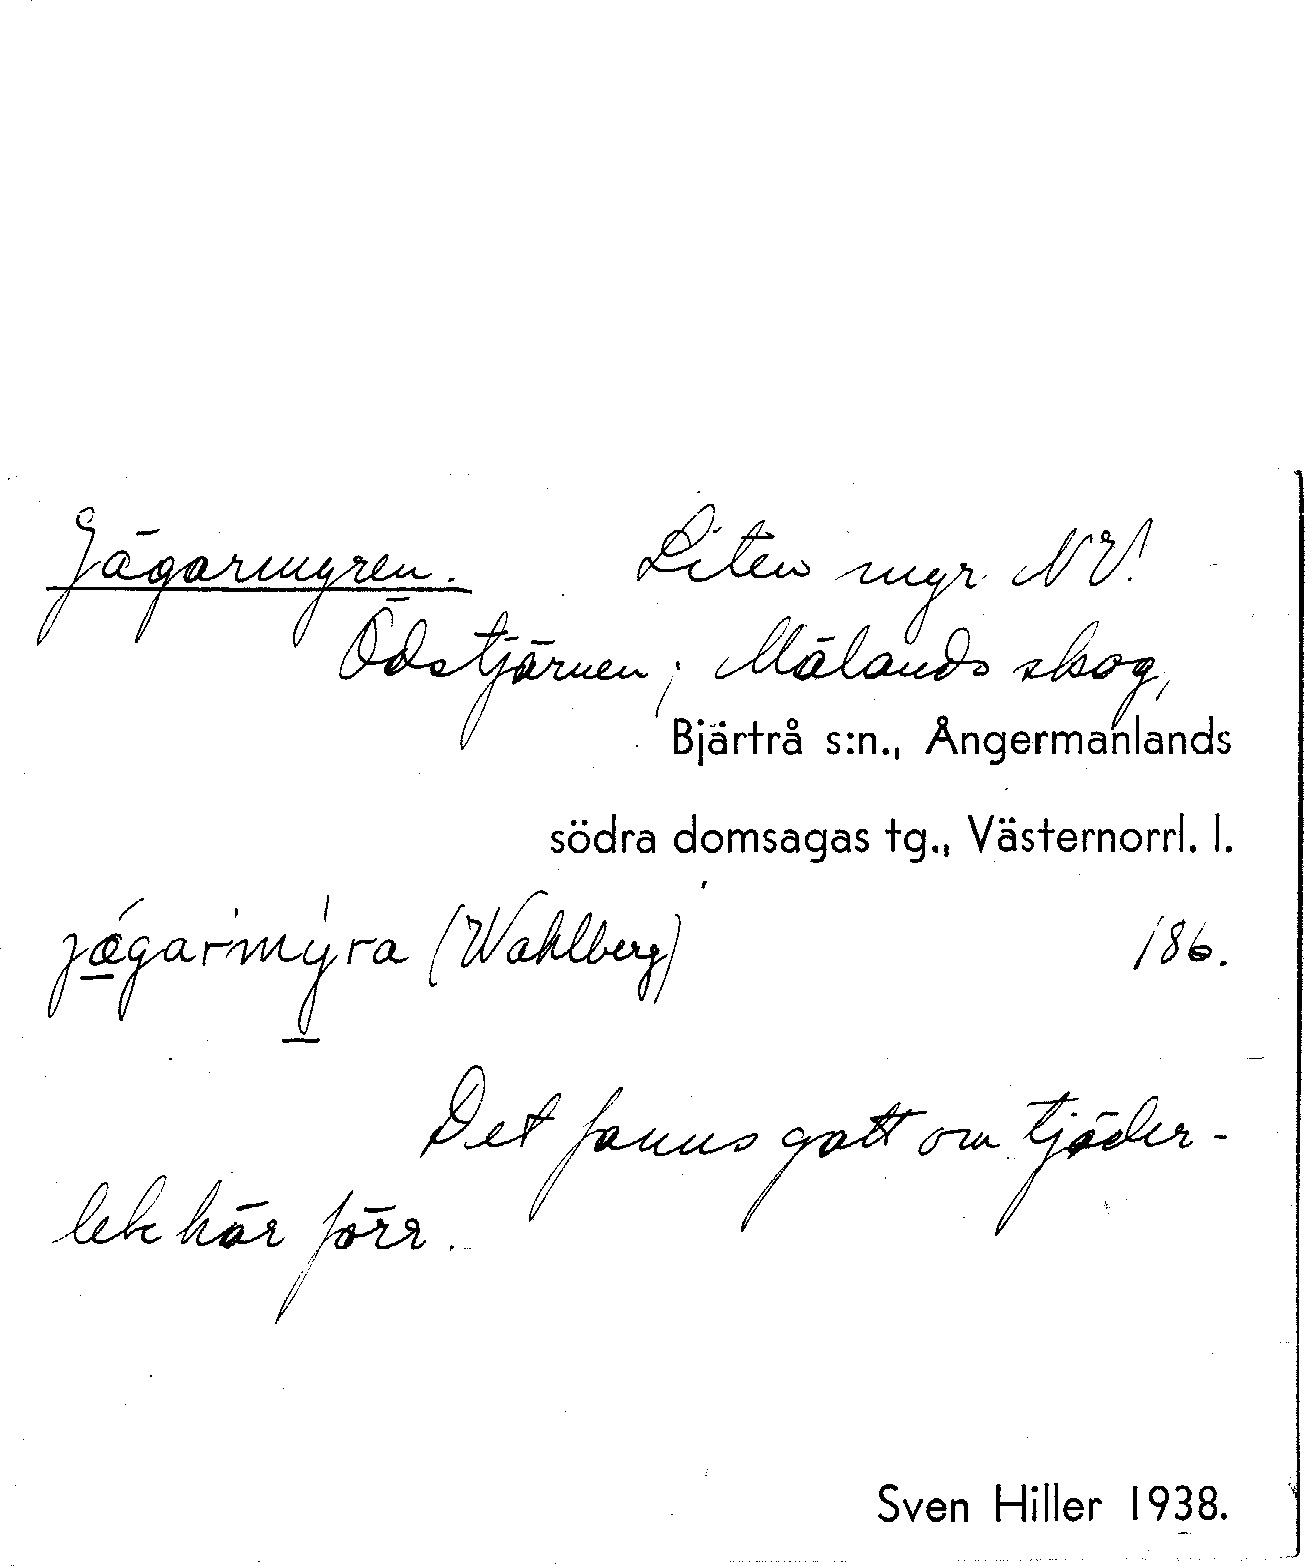 Jägarmyren. Liten myr NV!
Ödstjärnen; Målands skog,
Bjärtrå s:n., Ångermanlands
södra domsagas tg., Västernorrl. l.
jägarmyra (Wahlberg) 186.
Det fanns gott om tjäder-
lek här förr.
Sven Hiller 1938.